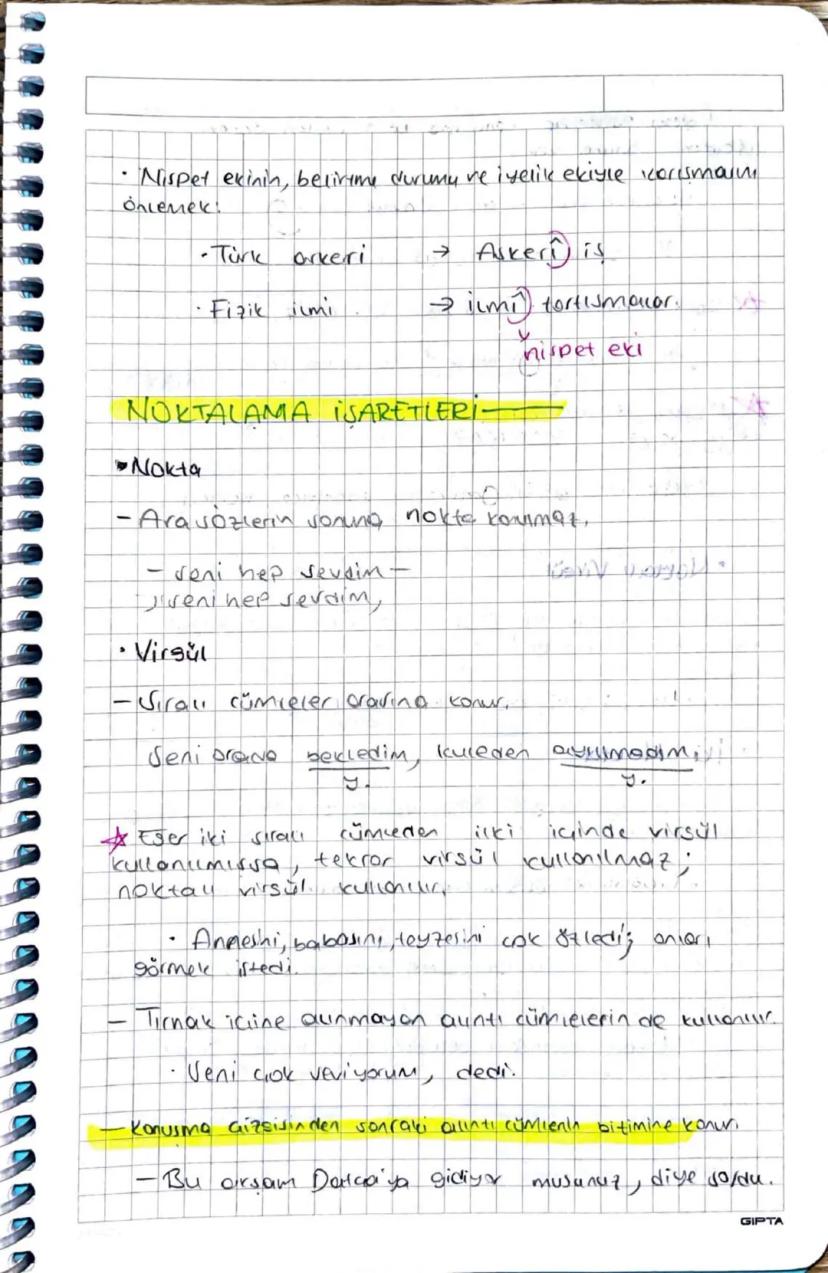 · Nispet ekinin, belirtme durumu ve iyelik ekiyle karışmasını
önlemek:
· Türk askeri → Askerî iş
· Fizik ilmi → ilmî tartışmalar.
nispet eki
NOKTALAMA İŞARETLERİ
• Nokta
- Ara sözlerin sonuna nokta konmaz.
- seni hep sevdim -
, seni hep sevdim,
• Virgül
- Sıralı cümleler arasına konur.
Seni orada bekledim, kuleden ayrılmadım.
y. y.
☆ Eğer iki sıralı cümleden ilki içinde virgül
kullanılmışsa, tekrar virgül kullanılmaz;
noktalı virgül kullanılır.
· Annesini, babasını, teyzesini çok özledi; onları
görmek istedi.
- Tırnak içine alınmayan alıntı cümlelerin de kullanılır.
· Seni çok seviyorum, dedi.
- Konuşma çizgisinden sonraki alıntı cümlenin bitimine konur.
- Bu akşam Datça'ya gidiyor musunuz, diye sordu.
GIPTA